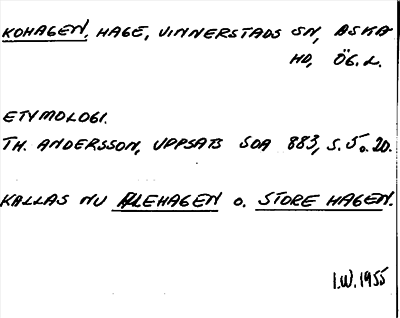 KOHAGEN, HAGE, VINNERSTADS SN, ASKA
HD, ÖG. L.
ETYMOLOGI.
TH. ANDERSSON, UPPSATS SOA 883, S. 5 o. 20.
KALLAS NU ALEHAGEN o. STORE HAGEN.
I.W. 1955